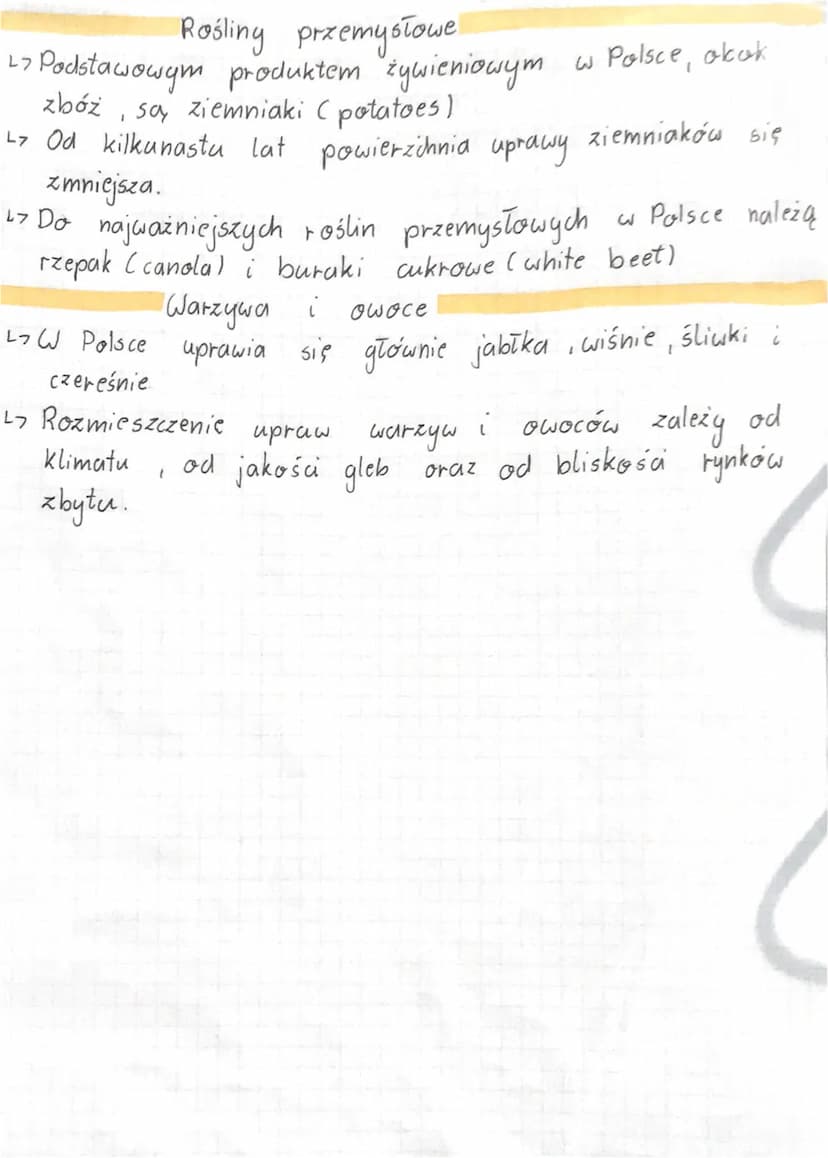 Rośliny przemysłowe
↳ Podstawowym produktem żywieniowym w Polsce, okok
zbóż, są ziemniaki (potatoes)
↳ Od kilkunastu lat powierzchnia uprawy ziemniaków się
zmniejsza.
↳ Do najważniejszych roślin przemysłowych w Polsce należą
rzepak (canola) i buraki cukrowe (white beet)
Warzywa i owoce
↳ W Polsce uprawia się głównie jabłka, wiśnie, śliwki i
czereśnie
↳ Rozmieszczenie upraw warzyw i owoców zależy od
klimatu, od jakości gleb oraz od bliskości rynków
zbytu.